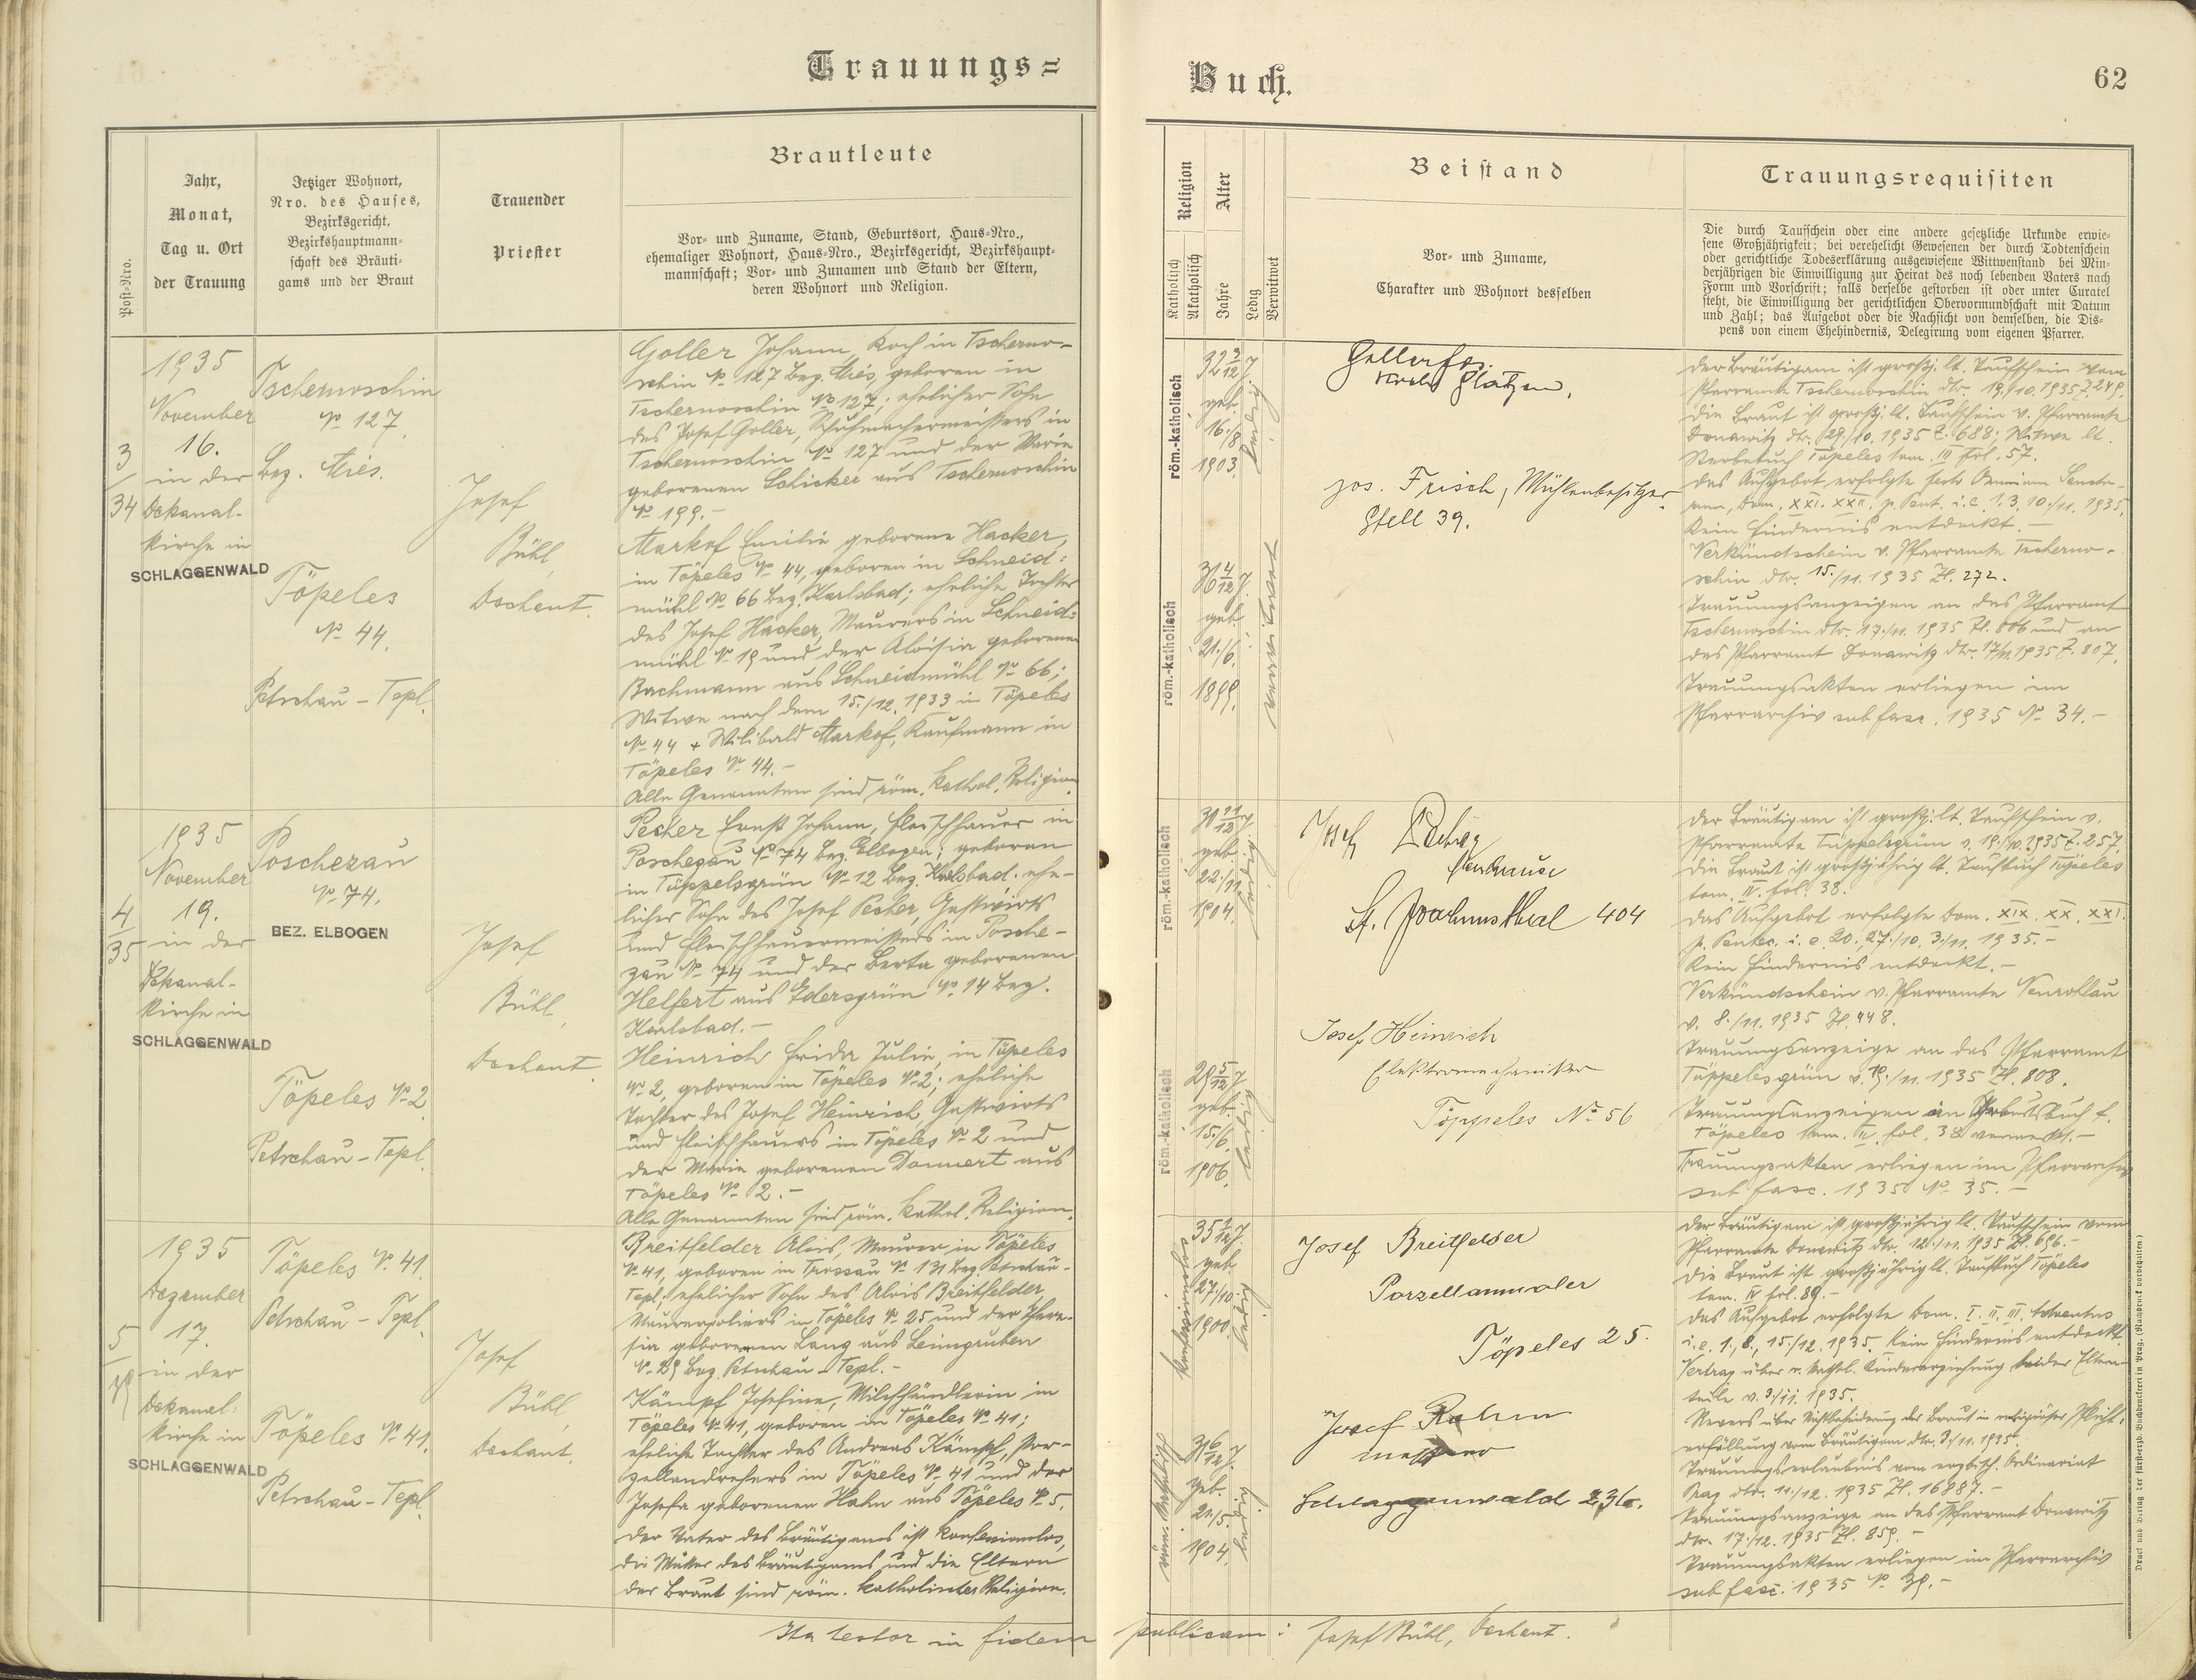 Trauungs=
Buch.
62
Post=Nro.
Jahr,
Monat,
Tag u. Ort
der Trauung
Jetziger Wohnort,
Nro. des Hauses,
Bezirksgericht,
Bezirkshauptmann=
schaft des Bräuti=
gams und der Braut
Trauender
Priester
Brautleute
Vor= und Zuname, Stand, Geburtsort, Haus=Nro.,
ehemaliger Wohnort, Haus=Nro., Bezirksgericht, Bezirkshaupt=
mannschaft; Vor= und Zunamen und Stand der Eltern,
deren Wohnort und Religion.
Religion
Katholisch
Akatholisch
Alter
Jahre
Ledig
Verwitwet
Beistand
Vor= und Zuname,
Charakter und Wohnort desselben
Trauungsrequisiten
Die durch Taufschein oder eine andere gesetzliche Urkunde erwie=
sene Großjährigkeit; bei verehelicht Gewesenen der durch Todtenschein
oder gerichtliche Todeserklärung ausgewiesene Wittwenstand bei Min=
derjährigen die Einwilligung zur Heirat des noch lebenden Vaters nach
Form und Vorschrift; falls derselbe gestorben ist oder unter Curatel
steht, die Einwilligung der gerichtlichen Obervormundschaft mit Datum
und Zahl; das Aufgebot oder die Nachsicht von demselben, die Dis=
pens von einem Ehehindernis, Delegirung vom eigenen Pfarrer.
3
34
1935
November
16.
in der
Dekanal-
kirche in
SCHLAGGENWALD
Tschernoschin
No 127.
Bez. Mies.
Töpeles
No 44.
Petschau - Tepl.
Josef
Bühl,
Dechant.
Goller Johann, Koch in Tscherno-
schin No 127 Bez. Mies, geboren in
Tschernoschin No 127; ehelicher Sohn
des Josef Goller, Schuhmachermeisters in
Tschernoschin No 127 und der Marie
geborenen Schicker aus Tschernoschin
No 199.-
Markof Emilie geborene Hacker,
in Töpeles No 44, geboren in Schneid:
mühl No 66 Bez. Karlsbad; eheliche Tochter
des Josef Hacker, Maurers in Schneid=
mühl No 19 und der Aloisia geborenen
Bachmann aus Schneidmühl No 66;
Witwe nach dem 15./12. 1933 in Töpeles
No 44 + Wilibald Markof, Kaufmann in
Töpeles No 44.-
Alle Genannten sind röm. kathol. Religion.
röm.-katholisch
32 3/12 J.
geb.
16./8.
1903.
ledig
röm.-katholisch
36 4/12 J.
geb.
21./6.
1899.
verwitwet
Goller Jos.
Jos. Frisch, Mühlenbesitzer
Gfell 39.
Der Bräutigam ist großj. lt. Taufschein vom
Pfarramte Tschernoschin dto. 19./10. 1935 Z. 249.
Die Braut ist großj. lt. Taufschein v. Pfarramte
Donawitz dto. 29./10. 1935 Z. 688; Witwe lt.
Sterbebuch Töpeles tom. III fol. 57.
Das Aufgebot erfolgte festo Omnium Sancto-
rum, Dom. XXI. XXII. p. Pent. i. e. 1. 3. 10./11. 1935.
Kein Hindernis entdeckt.-
Verkündschein v. Pfarramte Tscherno-
schin dto. 15./11. 1935 Zl. 272.
Trauungsanzeigen an das Pfarramt
Tschernoschin dto. 17./11. 1935 Zl. 806 und an
das Pfarramt Donawitz dto. 17/11. 1935 Z. 807.
Trauungsakten erliegen im
Pfarrarchiv sub fasc. 1935 No 34.-
4
35
1935
November
19.
in der
Dekanal-
kirche in
SCHLAGGENWALD
Poschezau
No 74.
BEZ. ELBOGEN
Töpeles No 2
Petschau - Tepl.
Josef
Bühl,
Dechant.
Pecher Ernst Johann, Fleischhauer in
Poschezau No 74 Bez. Elbogen; geboren
in Tüppelsgrün No 12 Bez. Karlsbad. ehe-
licher Sohn des Josef Pecher, Gastwirts
und Fleischhauermeisters in Posche-
zau No 74 und der Berta geborenen
Helfert aus Edersgrün No 14 Bez.
Karlsbad.-
Heinrich Frida Julie, in Töpeles
No 2, geboren in Töpeles No 2; eheliche
Tochter des Josef Heinrich, Gastwirts
und Fleischhauers in Töpeles No 2 und
der Marie geborenen Donnert aus
Töpeles No 2.-
Alle Genannten sind röm. kathol. Religion.
röm.-katholisch
30 11/12 J.
geb.
22./11.
1904.
ledig
röm.-katholisch
29 5/12 J.
geb.
15./6.
1906.
ledig
Josef
St. Joachimsthal 404
Josef Heinrich
Elektromechaniker
Töppeles No 56
Der Bräutigam ist großj. lt. Taufschein v.
Pfarramte Tüppelsgrün v. 19./10. 1935 Z. 257.
Die Braut ist großjährig lt. Taufbuch Töpeles
tom. IV. fol. 38.
Das Aufgebot erfolgte Dom. XIX. XX. XXI.
p. Pentec. i. e. 20., 27./10. 3./11. 1935.-
Kein Hindernis entdeckt.-
Verkündschein v. Pfarramte Neurohlau
v. 8./11. 1935 Zl. 448.
Trauungsanzeige an das Pfarramt
Tüppelsgrün v. 19./11. 1935 Zl. 808.
Trauungsanzeigen im Geburtsbuch f.
Töpeles tom. IV. fol. 38 vermerkt.-
Trauungsakten erliegen im Pfarrarchiv
sub fasc. 1935 No 35.-
5
1935
Dezember
17.
in der
Dekanal:
kirche in
SCHLAGGENWALD
Töpeles No 41.
Petschau - Tepl.
Töpeles No 41.
Petschau - Tepl.
Josef
Bühl,
Dechant.
Breitfelder Alois, Maurer in Töpeles
No 41, geboren in Trossau No 131 Bez. Petschau-
Tepl; ehelicher Sohn des Alois Breitfelder,
Maurerpoliers in Töpeles No 25 und der There-
sia geborenen Lang aus Leimgruben
No 29 Bez. Petschau - Tepl.-
Kämpf Josefine, Milchhändlerin in
Töpeles No 41, geboren in Töpeles No 41;
eheliche Tochter des Andreas Kämpf, Por-
zellandrehers in Töpeles No 41 und der
Josefa geborenen Hahn aus Töpeles No 5.
Der Vater des Bräutigams ist konfessionslos,
die Mutter des Bräutigams und die Eltern
der Braut sind röm. katholischer Religion.
konfessionslos
35 1/12 J.
geb.
27./10.
1900.
ledig
röm. katholisch
31 6/12 J.
geb.
21./5.
1904.
ledig
Josef Breitfelder
Porzellanmaler
Töpeles 25.
Josef
Schlaggenwald 236.
Der Bräutigam ist großjährig lt. Taufschein vom
Pfarramte Donawitz dto. 12./11. 1935 Zl. 696.-
Die Braut ist großjährig lt. Taufbuch Töpeles
tom. IV fol. 89.-
Das Aufgebot erfolgte Dom. I. II. III. Adventus
i. e. 1., 8., 15./12. 1935. Kein Hindernis entdeckt.
Vertrag über r. kathol. Kindererziehung beider Eltern-
teile v. 3./11. 1935.
Revers über Nichtbehinderung der Braut in religiöser Pflicht=
erfüllung vom Bräutigam dto. 3./11. 1935.
Trauungserlaubnis vom erzbisch. Ordinariat
Prag dto. 11./12. 1935 Zl. 16887.-
Trauungsanzeige an das Pfarramt Donawitz
dto. 17./12. 1935 Zl. 859.-
Trauungsakten erliegen im Pfarrarchiv
sub fasc. 1935 No 39.-
Ita testor in fidem publicam: Josef Bühl, Dechant.
Druck und Verlag der fürst=erzb. Buchdruckerei in Prag. (Nachdruck vorbehalten.)